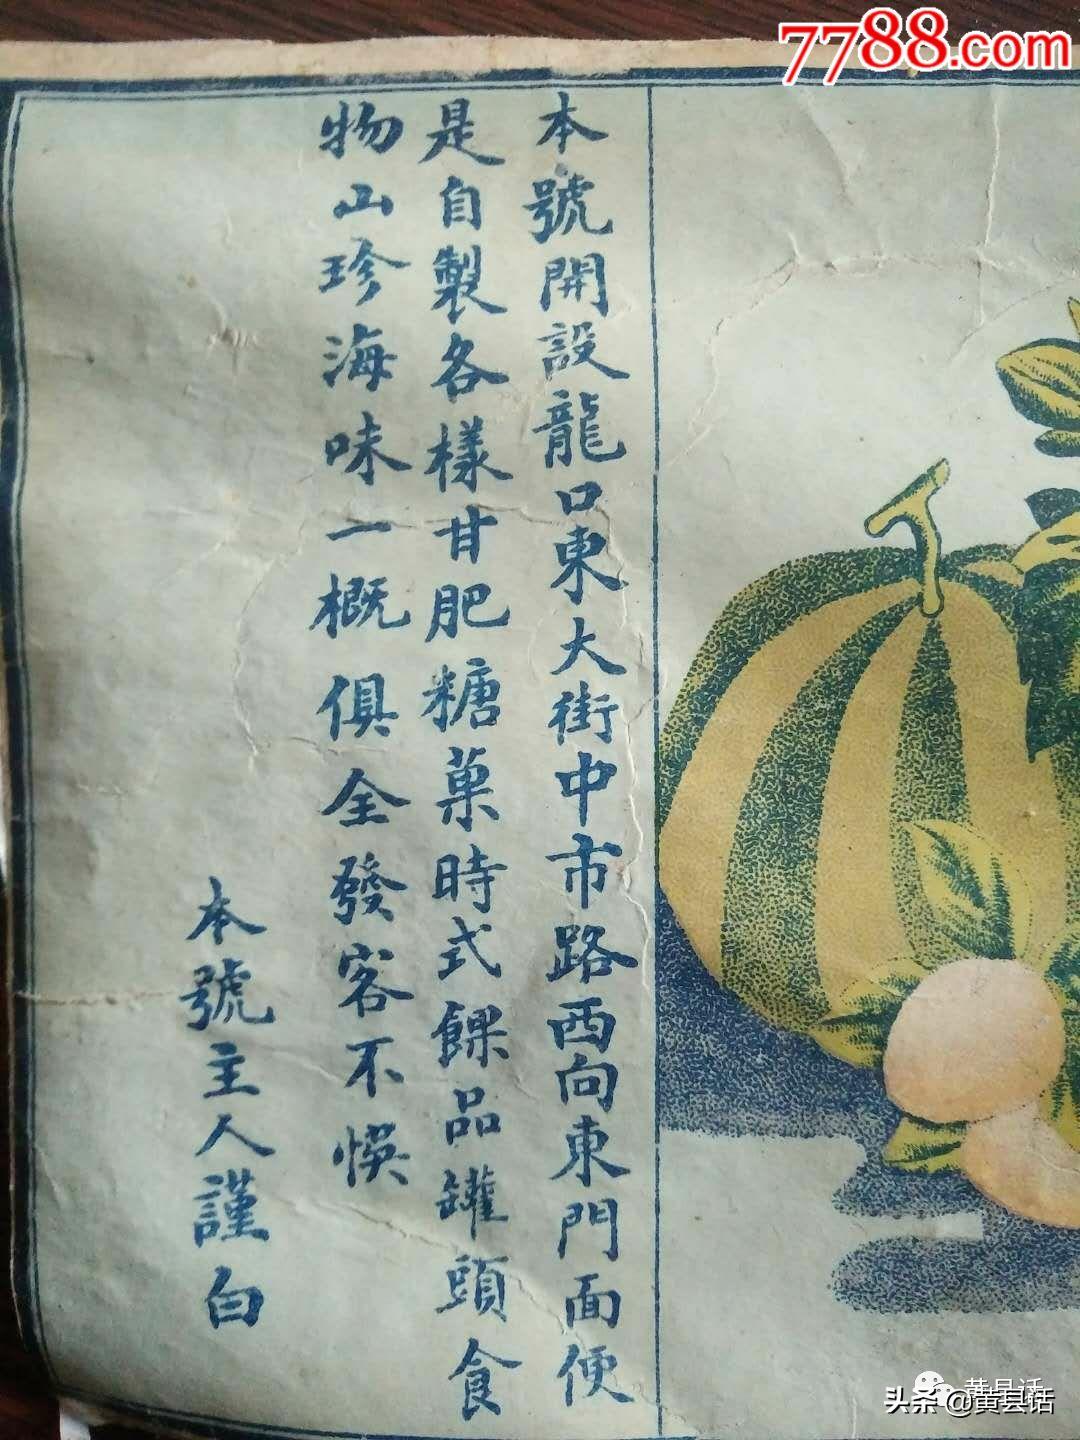 7788.com
本號開設龍口東大街中市路西向東門面便
是自製各樣甘肥糖菓時式餜品罐頭食
物山珍海味一概俱全發客不悮
本號主人謹白
黄县话
头条@黄县话